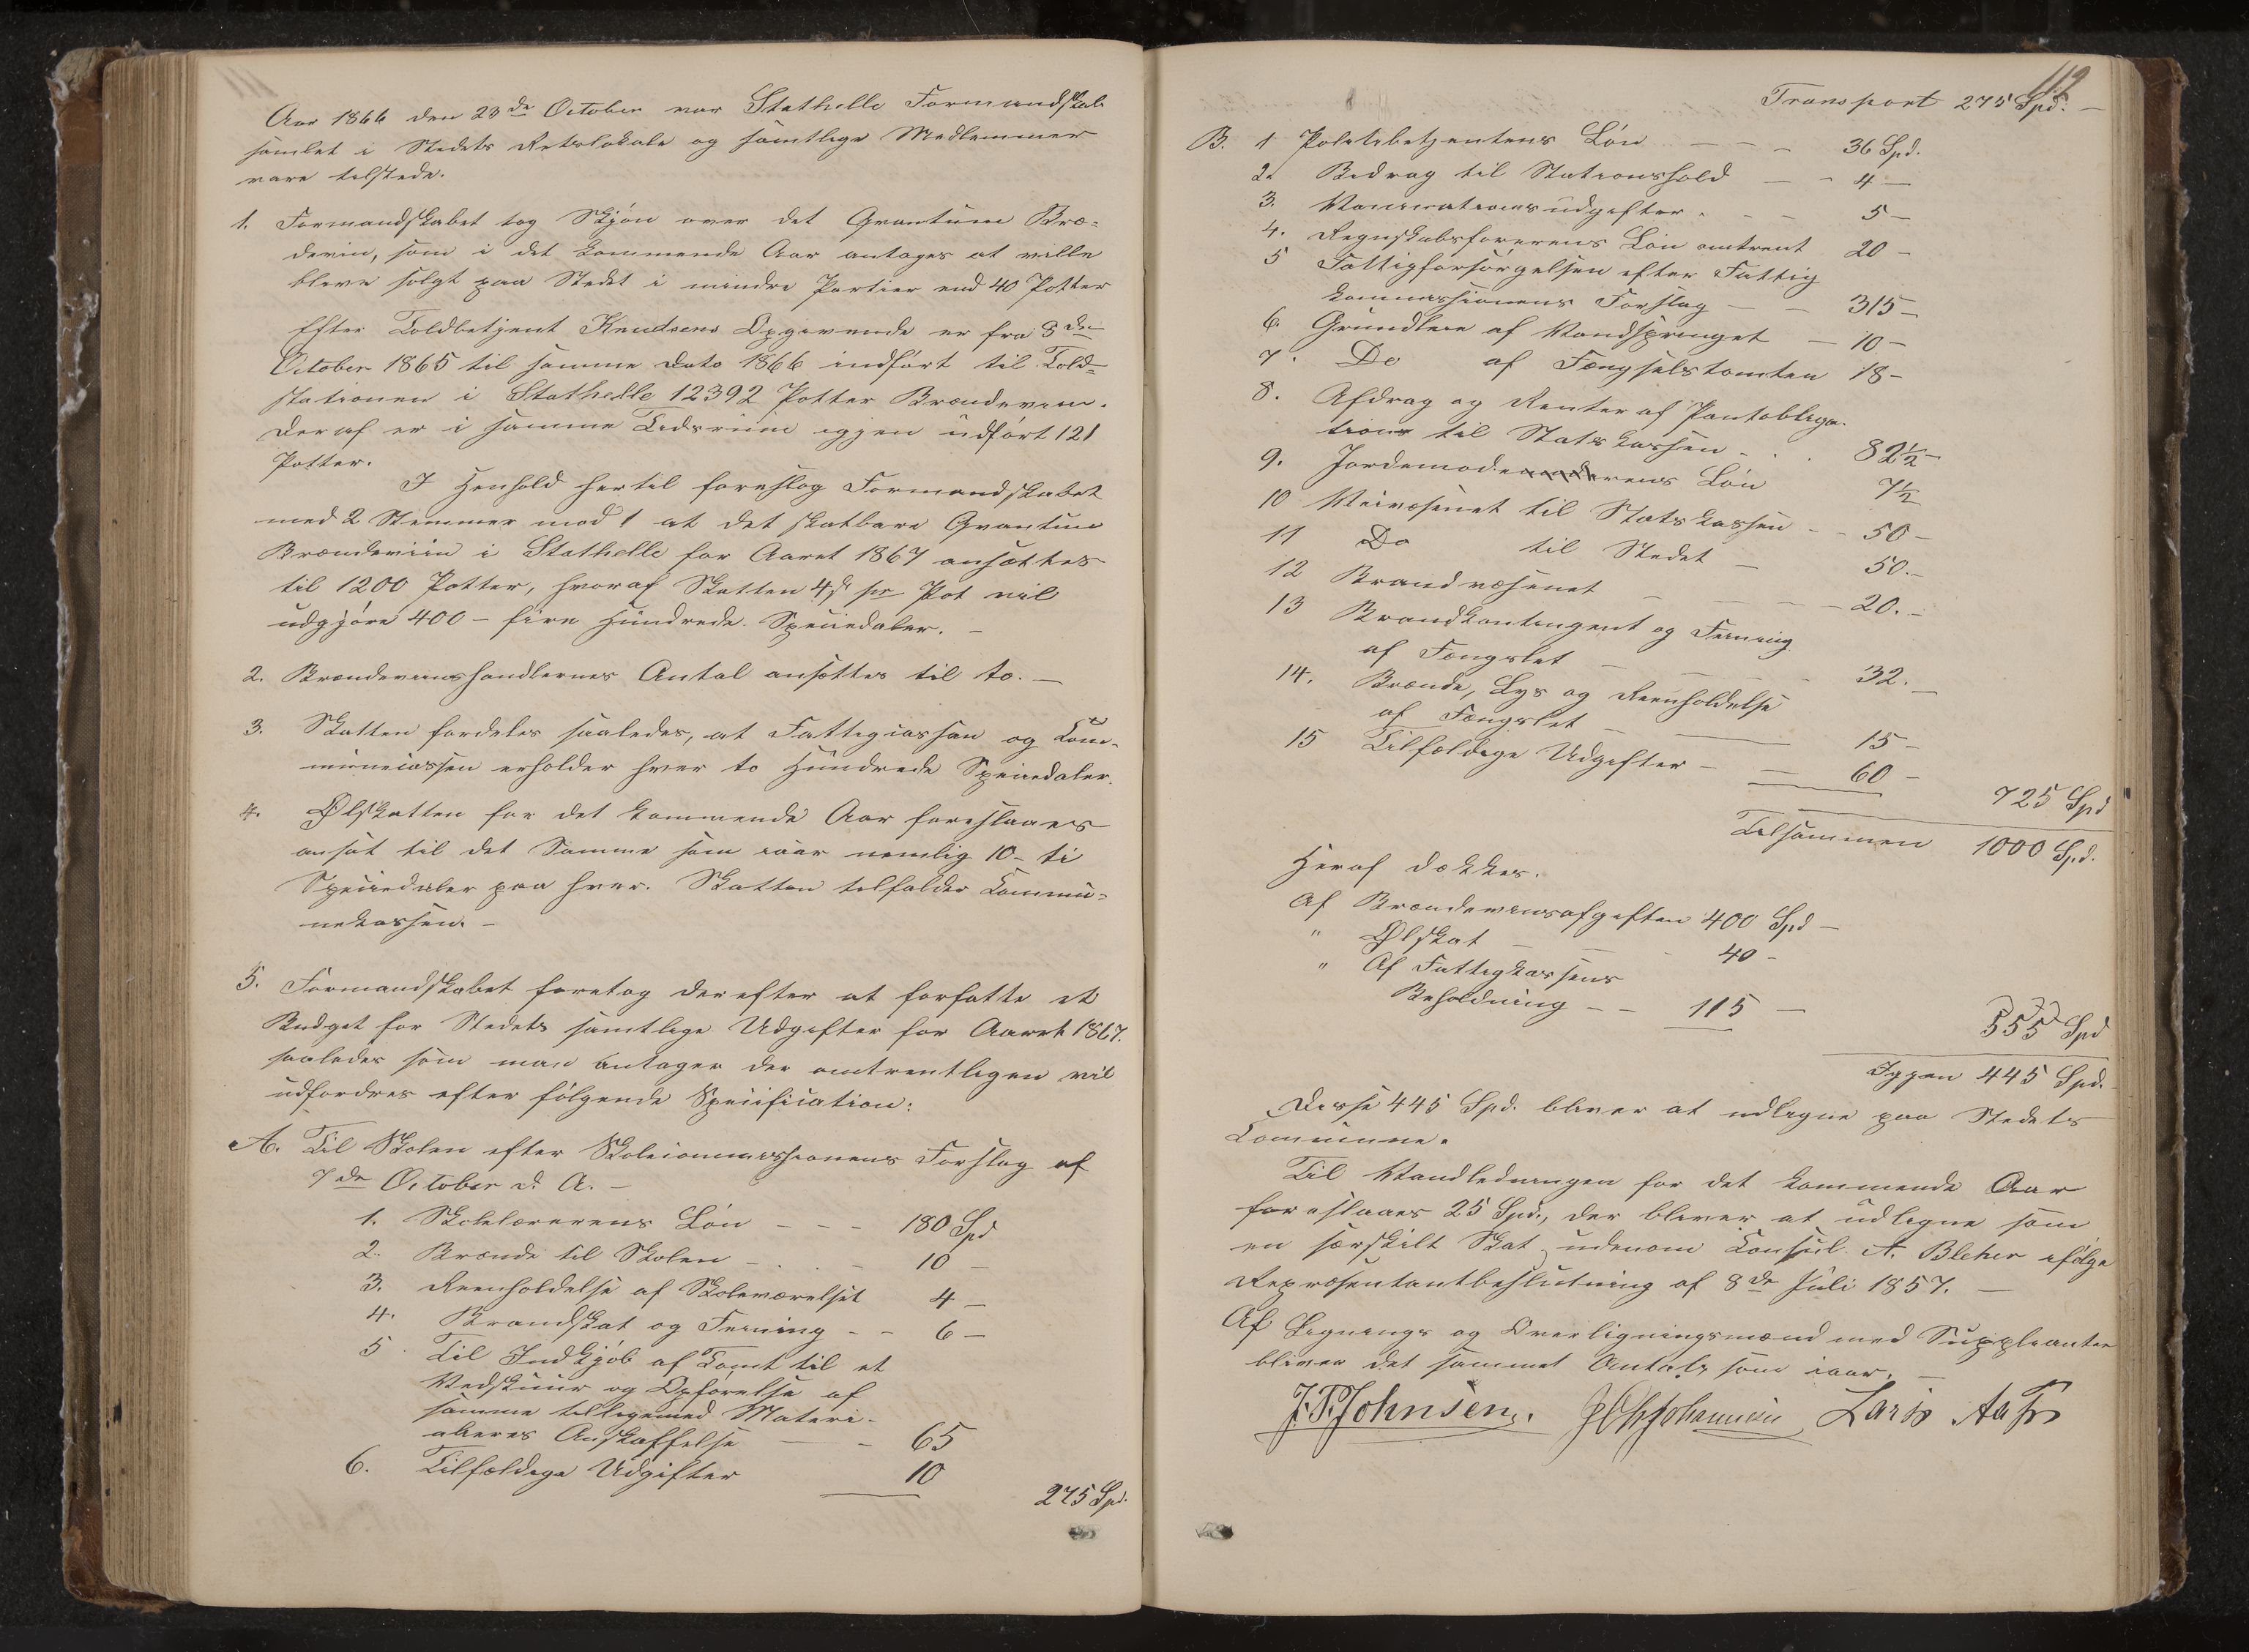 Aar 1866 den 23de October var Stathelle Formandskab
samlet i Stedets Retslokale og samtlige Medlemmer
vare tilstede.
1. Formandskabet tog Skjøn over det Qvantum Bræn-
deviin, som i det kommende Aar antages at ville
bleve solgt paa Stedet i mindre Partier end 40 Potter
Efter Toldbetjent Knudsens Opgivende er fra 8de
October 1865 til samme Dato 1866 indført til Told-
stationen i Stathelle 12392 Potter Brændeviin.
Deraf er i samme Tidsrum igjen udført 121
Potter.
I Henhold hertil foreslog Formandskabet
med 2 Stemmer mod 1 at det skatbare Qvantum
Brændeviin i Stathelle for Aaret 1867 ansættes
til 1200 Potter, hvoraf Skatten 4 s pr Pot vil
udgjøre 400 - fire Hundrede Speciedaler. -
2. Brændeviinshandlernes Antal ansattes til to. -
3. Skatten fordeles saaledes, at Fattigcassen og Com-
munecassen erholder hver to Hundrede Speciedaler.
4. Ølskatten for det kommende Aar foreslaaes
ansat til det Samme som iaar nemlig 10 - ti
Speciedaler paa hver. Skatten tilfalder Commu-
nekassen. -
5. Formandskabet foretog derefter at forfatte et
Budget for Stedets samtlige Udgifter for Aaret 1867.
saaledes som man antager der omtrentligen vil
udfordres efter følgende Specification:
A. Til Skolen efter Skolecommissionens Forslag af
7de October d. A. -
1. Skolelærerens Løn - - - 180 Spd
2. Brænde til Skolen - . . - 10 -
3. Reenholdelse af Skoleværelset 4 -
4. Brandskat og Feining - - 6 -
5. Til Indkjøb af Tomt til et
Vedskuur og Opførelse af
samme tilligemed Materi-
alieres Anskaffelse - - 65
6. Tilfældige Udgifter 10
275 Spd.
112
Transport 275 Spd. -
B. 1 Politibetjentens Løn - - - 36 Spd.
2. Bidrag til Stationshold - - 4 -
3. Vaccinationsudgifter. - - 5 -
4. Regnskabsførerens Løn omtrent 20 -
5 Fattigforsørgelsen efter Fattig
kommissionens Forslag - - 315 -
6. Grundleie af Vandspringet - 10 -
7. Do af Fængselstomten 18 -
8. Afdrag og Renter af Pantobliga-
tions til Statskassen - . . 82½ -
9. Jordemoderens Løn 7½
10 Veivæsenet til Statskassen - - 50 -
11 Do til Stedet - 50. -
12 Brandvæsenet - - - - 20. -
13 Brandkontingent og Feining
af Fængslet - - - - 32. -
14. Brænde, Lys og Reenholdelse
af Fængslet - - 15 -
15 Tilfældige Udgifter - - 60 -
725 Spd
Tilsammen 1000 Spd.
Heraf dækkes.
Af Brændeviinsafgiften 400 Spd -
" Ølskat - - - 40 -
" Af Fattigkassens
Beholdning - - 115 -
555 Spd
Igjen 445 Spd.
Disse 445 Spd. bliver at udligne paa Stedets
Commune.
Til Vandledningen for det kommende Aar
foreslaaes 25 Spd., der bliver at udligne som
en særskilt Skat udenom Consul A. Bleker ifølge
Repræsentantbeslutning af 8de Juli 1857. -
Af Lignings og Overligningsmænd med Suppleanter
bliver det sammet Antal, som iaar. -
J.P. Johnsen. Johannesen Lars